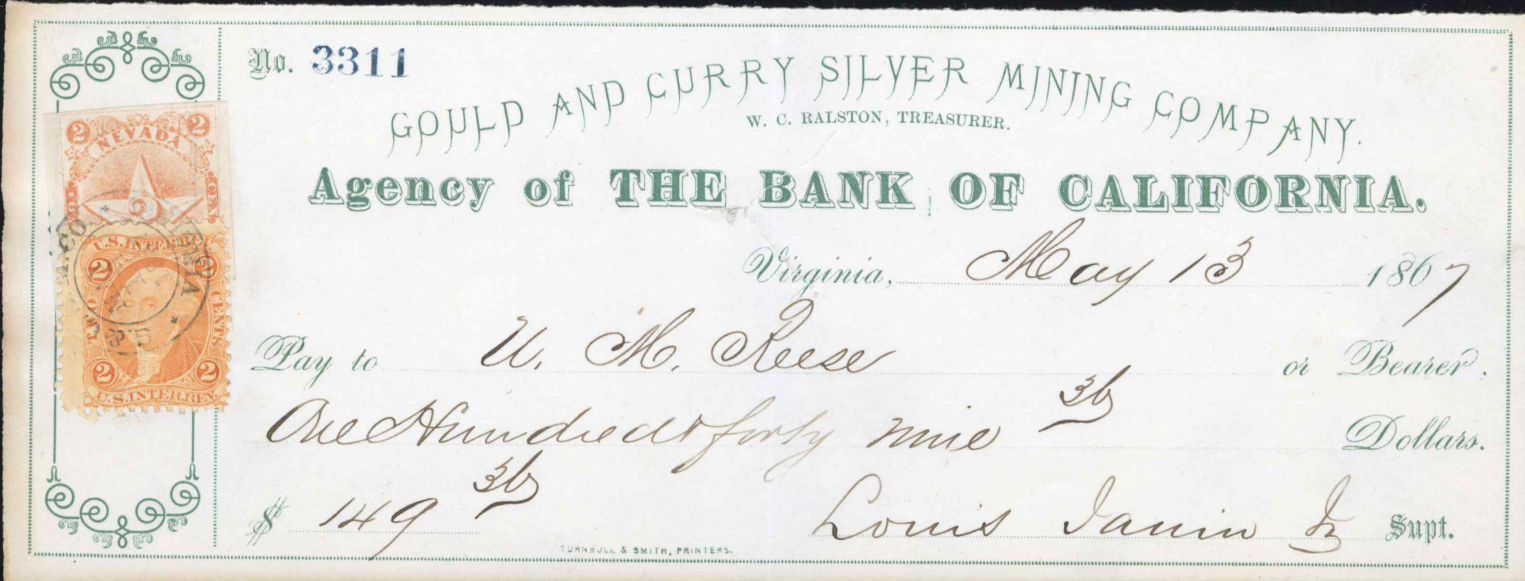 No. 3311
GOULD AND CURRY SILVER MINING COMPANY.
W. C. RALSTON, TREASURER.
Agency of THE BANK OF CALIFORNIA.
Virginia, May 13 1867
Pay to W. M. Reese or Bearer.
One Hundred & forty nine 36 Dollars.
$ 149 36
Louis Janin Jr Supt.
TURNBULL & SMITH, PRINTERS.
2 NEVADA 2
U.S. INTER. REV.
2 2
TWO CENTS
2 2
U.S. INTER. REV.